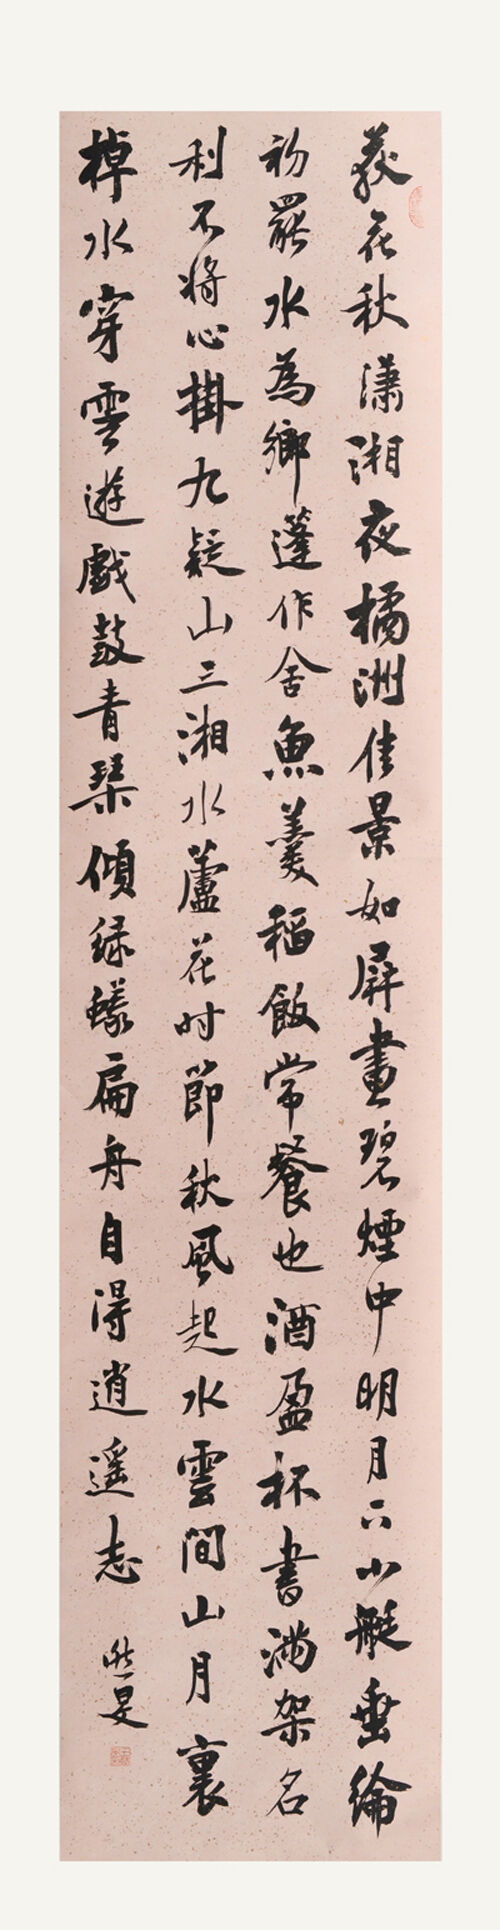 荻花秋瀟湘夜橘洲佳景如屏畫碧煙中明月下小艇垂綸
初罷水為鄉蓬作舍魚羹稻飯常餐也酒盈杯書滿架名
利不將心掛九疑山三湘水蘆花时節秋風起水雲間山月裏
棹水穿雲遊戲鼓青琴傾綠蟻扁舟自得逍遙志